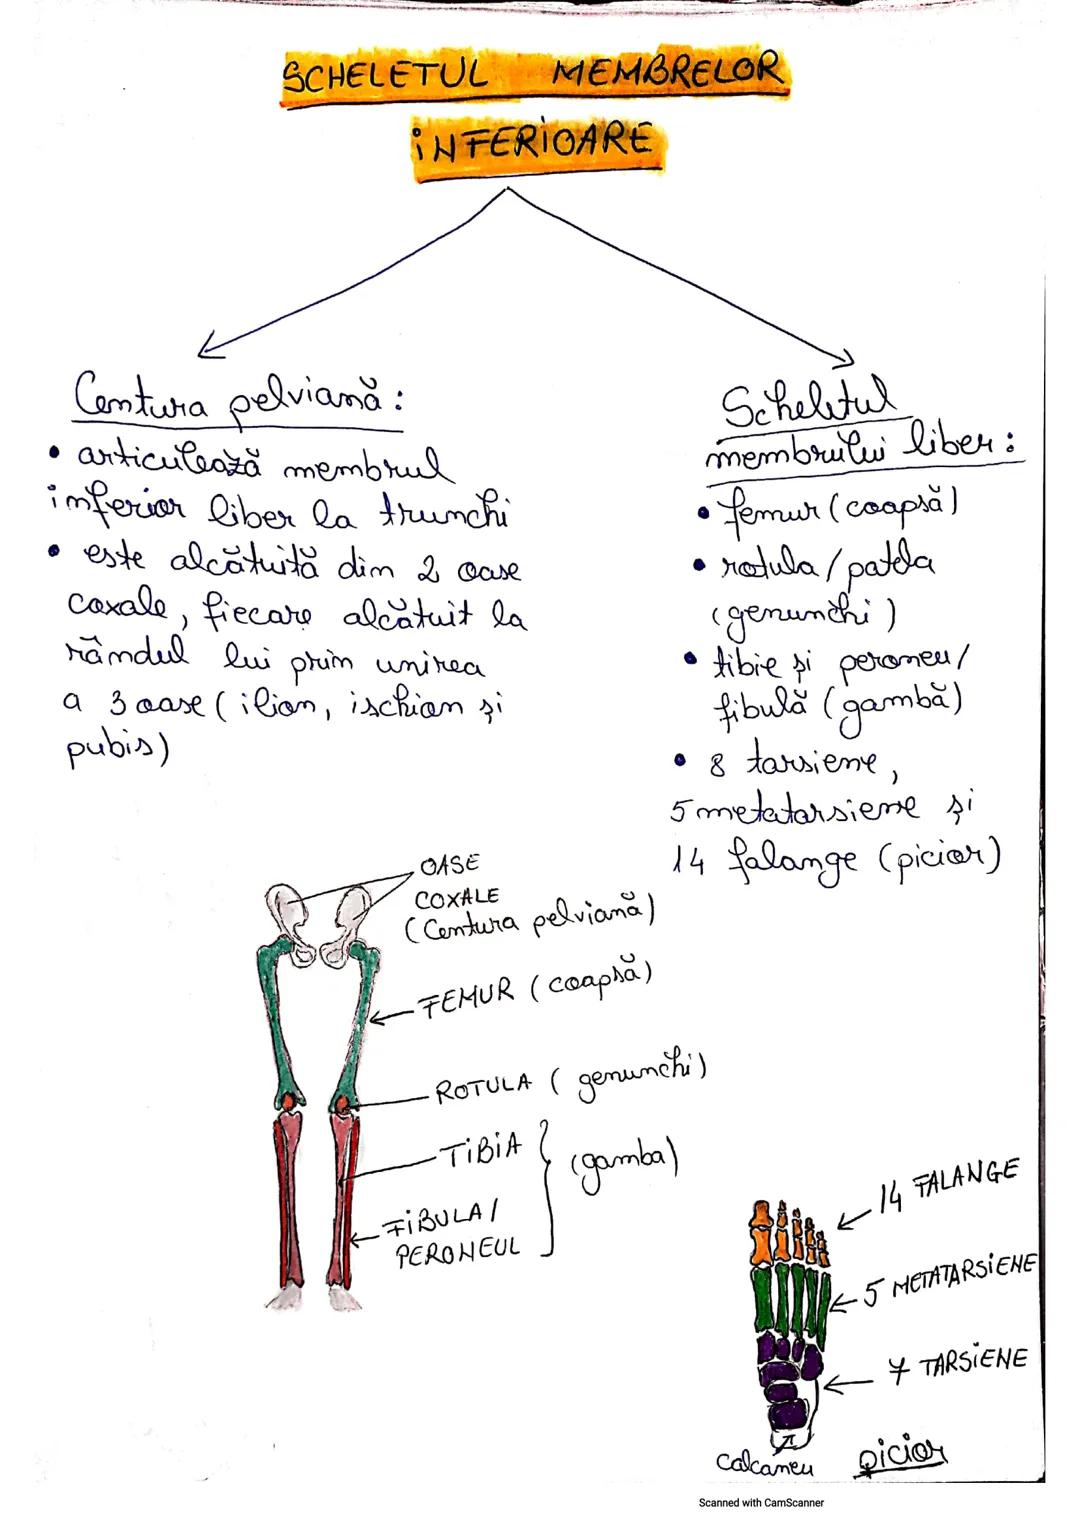 SCHELETUL MEMBRELOR
INFERIOARE
Centura pelviană:
• articulează membrul
inferior liber la trunchi
• este alcătuită din 2 oase
coxale, fiecare alcătuit la
rândul lui prin unirea
a 3 oase (ilion, ischion și
pubis)
Scheletul
membrului liber:
• femur (coapsă)
• rotula/patela
(genunchi)
• tibie și peroneu/
fibulă (gambă)
• 8 tarsiene,
5 metatarsiene și
14 falange (picior)
OASE
COXALE
(Centura pelviană)
FEMUR (coapsă)
ROTULA (genunchi)
TIBIA
(gamba)
FIBULA/
PERONEUL
14 FALANGE
5 METATARSIENE
7 TARSIENE
calcaneu
picior
Scanned with CamScanner